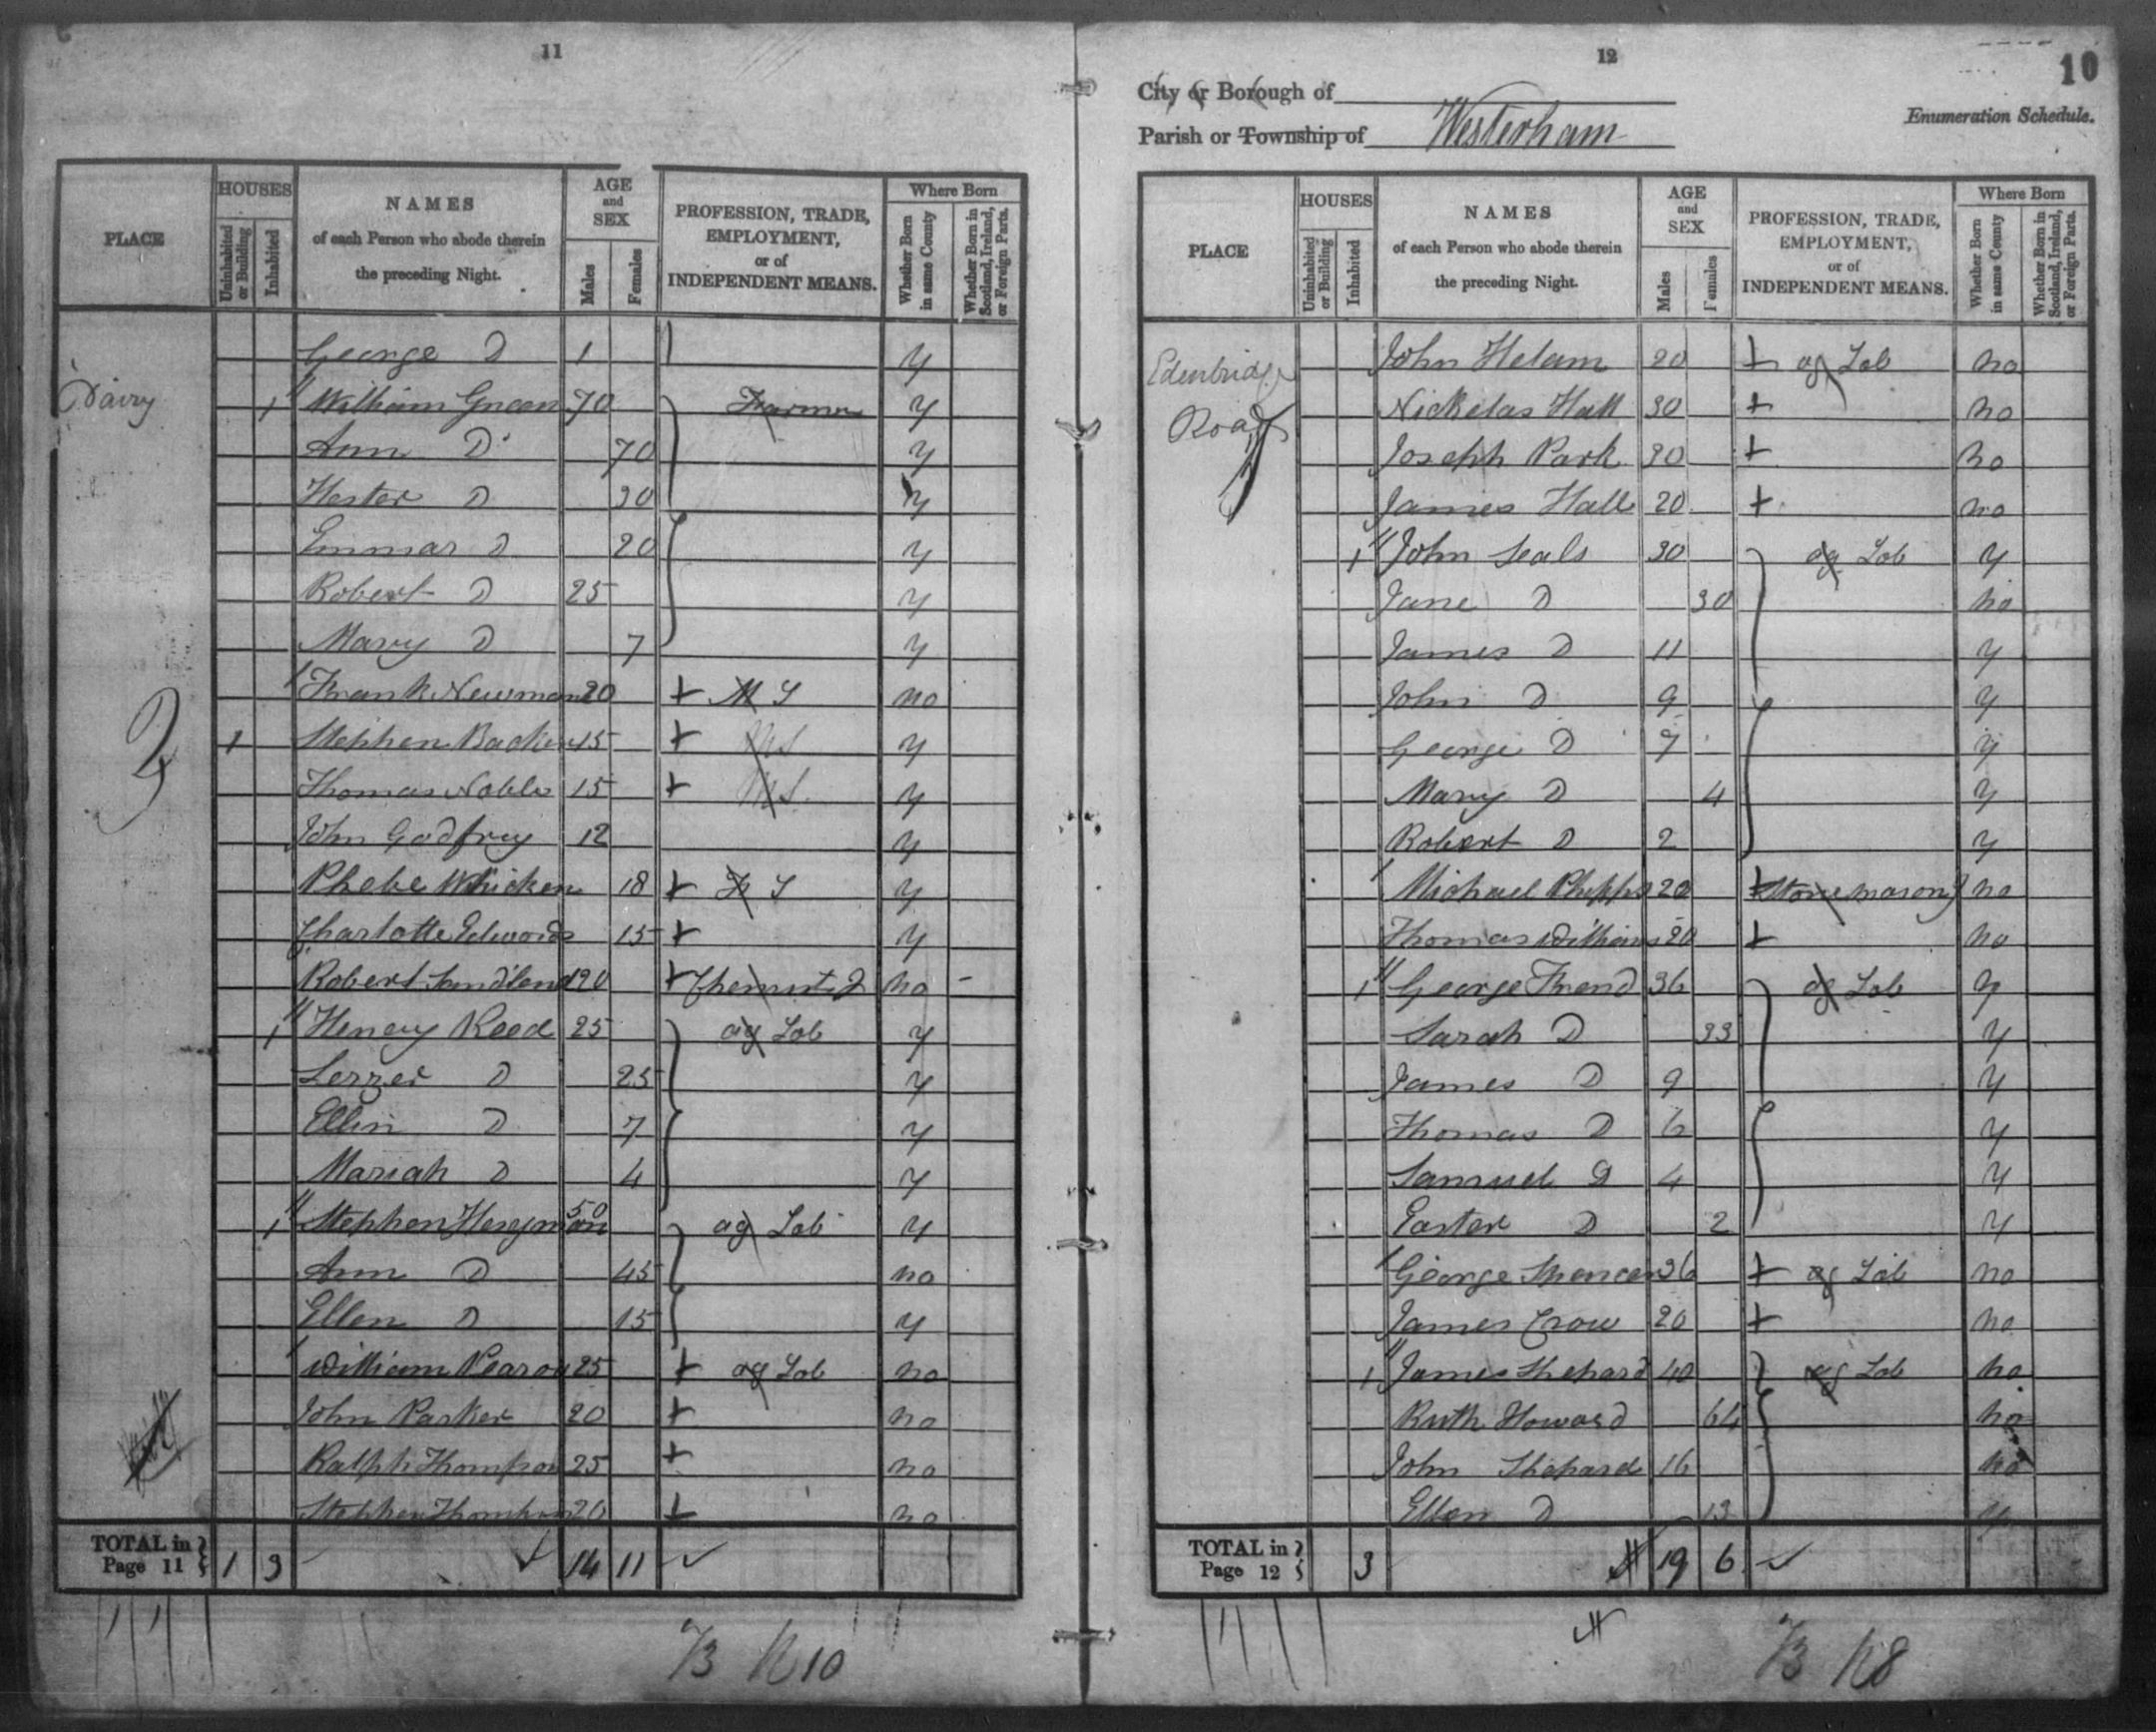 11
PLACE
HOUSES
Uninhabited or Building
Inhabited
NAMES
of each Person who abode therein
the preceding Night.
AGE
and
SEX
Males
Females
PROFESSION, TRADE,
EMPLOYMENT,
or of
INDEPENDENT MEANS.
Where Born
Whether Born in same County
Whether Born in Scotland, Ireland, or Foreign Parts.
George D 1 y
Dairy 1 William Green 70 Farmer y
Ann D 70 y
Hester D 30 y
Emmar D 20 y
Robert D 25 y
Mary D 7 y
Frank Newman 20 + M S no
1 Stephen Backer 15 + M S y
Thomas Noble 15 + M S y
John Godfrey 12 y
Phebe Whicken 18 + F S y
Charlotte Edwards 15 + y
Robert 20 + J no -
1 Henery Reed 25 ag Lab y
Lezzer D 25 y
Ellin D 7 y
Mariah D 4 y
1 Stephen 50 ag Lab y
Ann D 45 no
Ellen D 15 y
William 25 + ag Lab no
John Parker 20 + no
Ralph Thompson 25 + no
Stephen Thompson 20 + no
TOTAL in Page 11 1 3 14 11
10
12
10
City or Borough of
Enumeration Schedule.
Parish or Township of Westerham
PLACE
HOUSES
Uninhabited or Building
Inhabited
NAMES
of each Person who abode therein
the preceding Night.
AGE
and
SEX
Males
Females
PROFESSION, TRADE,
EMPLOYMENT,
or of
INDEPENDENT MEANS.
Where Born
Whether Born in same County
Whether Born in Scotland, Ireland, or Foreign Parts.
Edenbridge John Helam 20 + ag Lab no
Road Nickelas Hall 30 + no
Joseph Park 30 + no
James Hall 20 + no
1 John Seals 30 ag Lab y
Jane D 30 no
James D 11 y
John D 9 y
George D 7 y
Mary D 4 y
Robert D 2 y
Michael Phipps 20 + Stone mason J no
Thomas Williams 20 + no
1 George Friend 36 ag Lab y
Sarah D 33 y
James D 9 y
Thomas D 6 y
Samuel D 4 y
Easter D 2 y
George Spencer 36 + ag Lab no
James Crow 20 + no
1 James Shepard 40 ag Lab no
Ruth Howard 64 no
John Shepard 16 no
Ellen D 13 y
TOTAL in Page 12 3 19 6